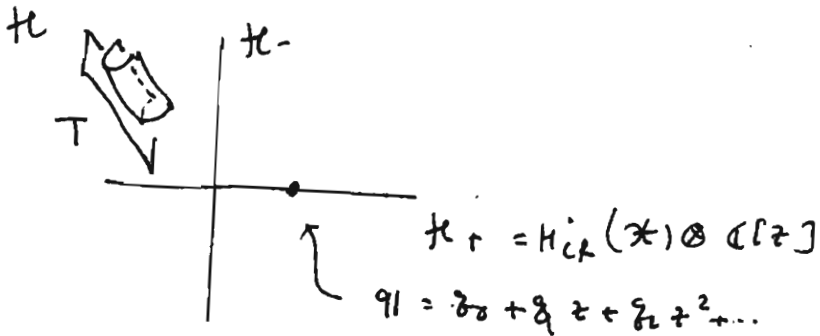 ℋ
ℋ-
T
ℋ+ = H˙CR (𝒳) ⊗ ℂ[z]
q = q0 + q1 z + q2 z² + ...